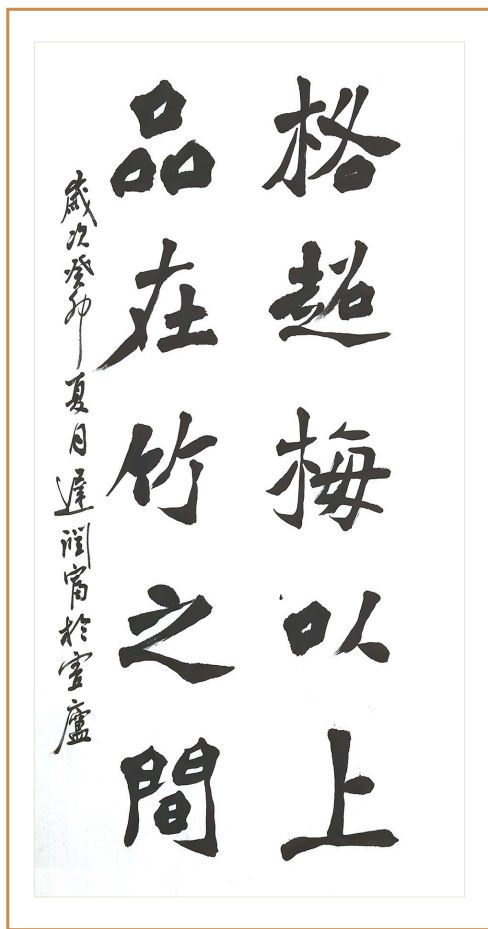 格超梅以上
品在竹之間
歲次癸卯夏月遲潤甯於雲廬